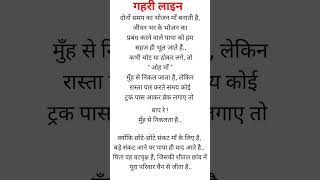 गहरी लाइन
दोनों समय का भोजन माँ बनाती है,
जीवन भर के भोजन का
प्रबंध करने वाले पापा को हम
सहज ही भूल जाते हैं..
कभी चोट या ठोकर लगे, तो
" ओह माँ "
मुँह से निकल जाता है, लेकिन
रास्ता पार करते समय कोई
ट्रक पास आकर ब्रेक लगाए तो
बाप रे !
मुँह से निकलता है..
क्योंकि छोटे-छोटे संकट माँ के लिए है,
बड़े संकट आने पर पापा ही याद आते है..
पिता वह वटवृक्ष है, जिसकी शीतल छांव में
पूरा परिवार चैन से जीता है..